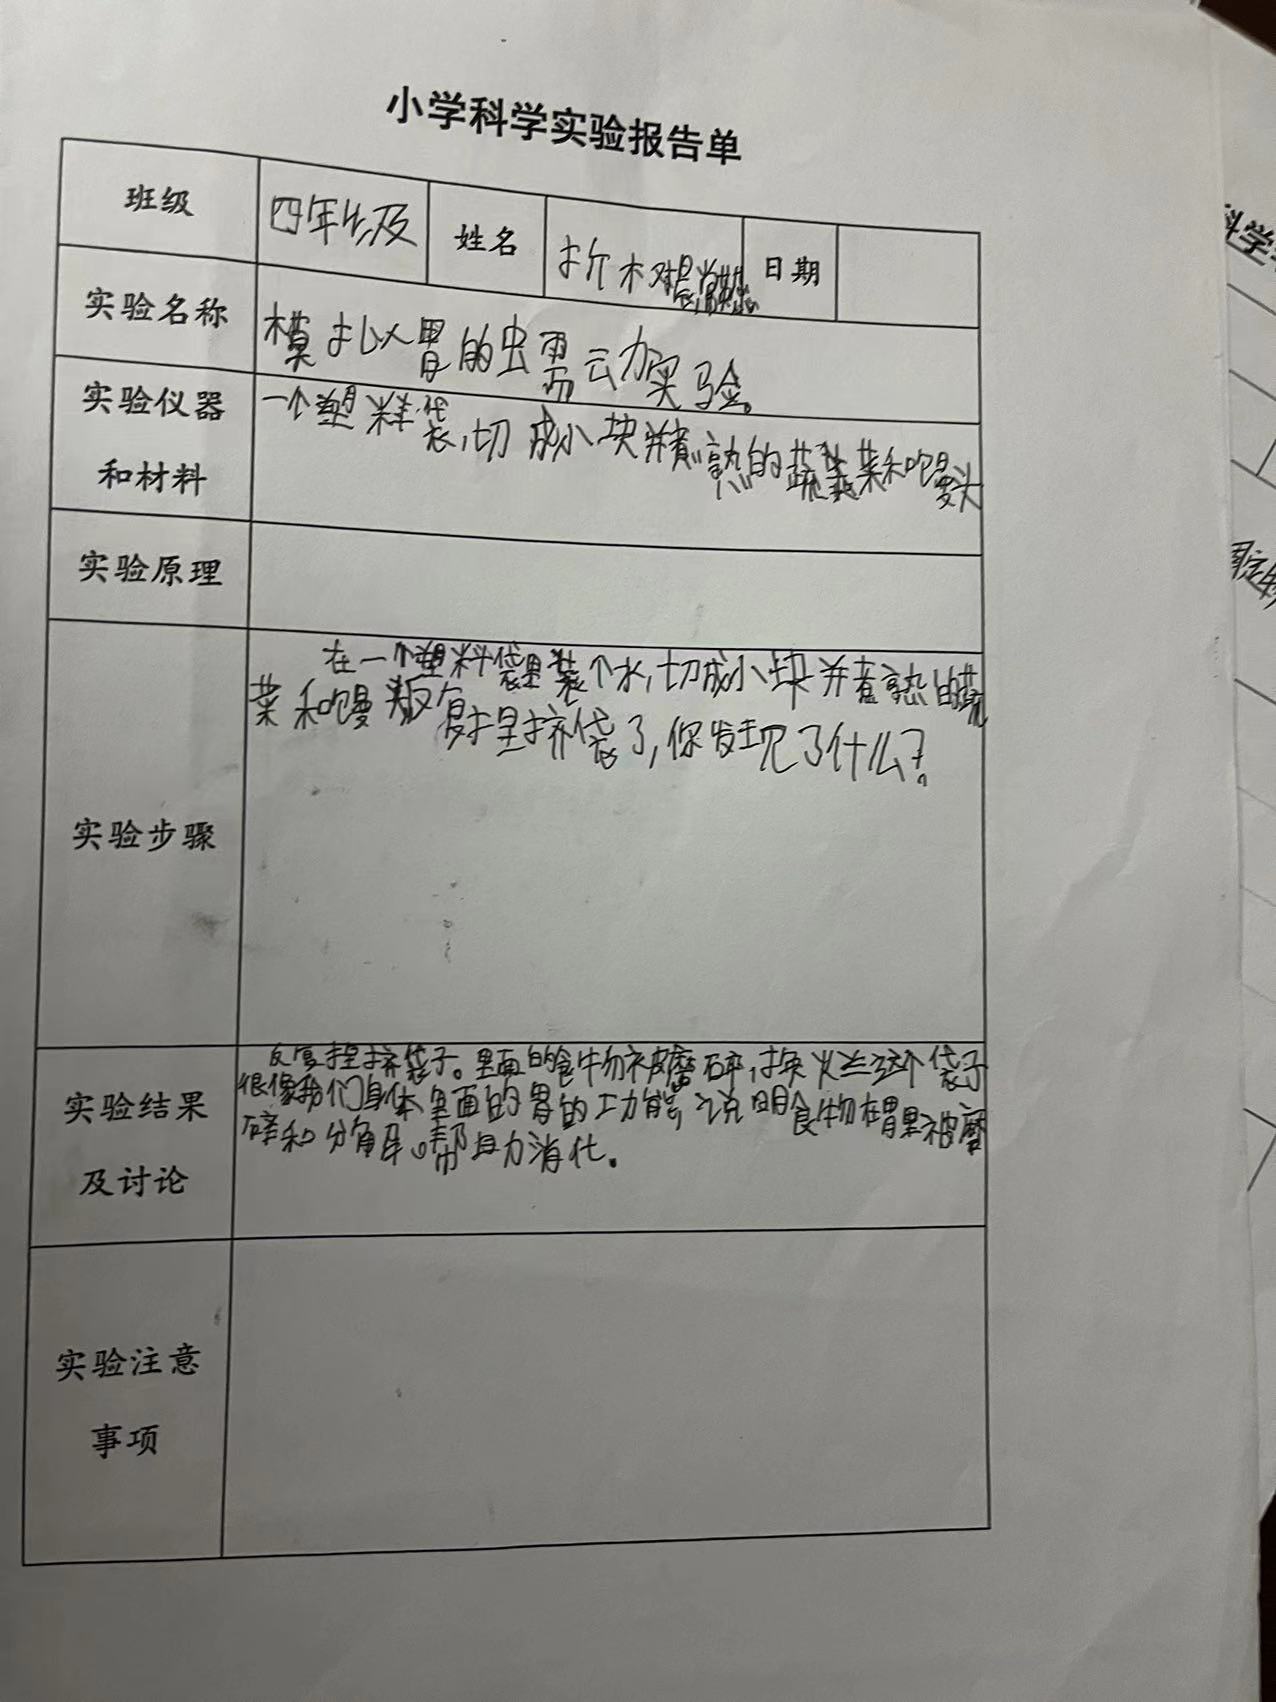 小学科学实验报告单
班级 四年级 姓名 日期
实验名称 模拟以胃的蠕动实验。
实验仪器
和材料
一个塑料袋,切成小块煮熟的蔬菜和馒头
实验原理
实验步骤
在一个塑料袋里装个水,切成小块并煮熟的蔬
菜和馒头反复捏挤袋了,你发现了什么?
实验结果
及讨论
反复捏挤袋子。里面的食物被磨碎,这个袋子
很像我们身体里面的胃的功能,说明食物在胃里被磨
碎和分解。帮助消化。
实验注意
事项
科学